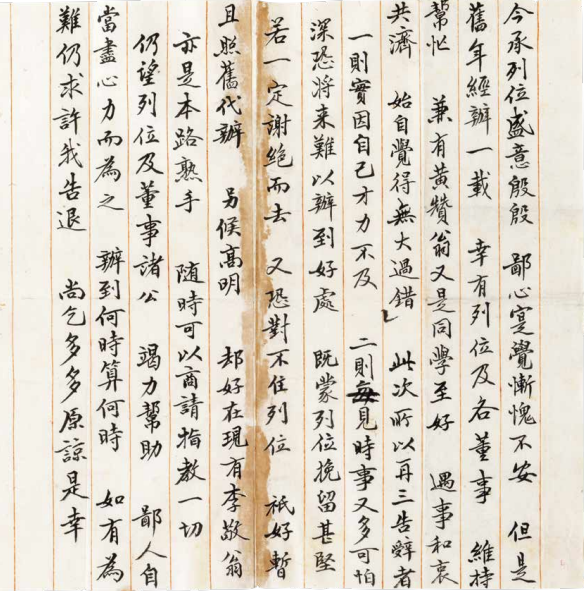 今承列位盛意殷殷　鄙心寔覺慚愧不安　但是
舊年經辦一載　幸有列位及各董事　維持
幫忙　兼有黃贊翁又是同學至好　遇事和衷
共濟　始自覺得無大過錯　此次所以再三告辭者
一則實因自己才力不及　二則每見時事又多可怕
深恐将来難以辦到好處　既蒙列位挽留甚堅
若一定謝絶而去　又恐對不住列位　祇好暫
且照舊代辦　另候髙明　却好在現有李敬翁
亦是本路熟手　随時可以商請指教一切
仍望列位及董事諸公　竭力幫助　鄙人自
當盡心力而為之　辦到何時算何時　如有為
難仍求許我告退　尚乞多多原諒是幸